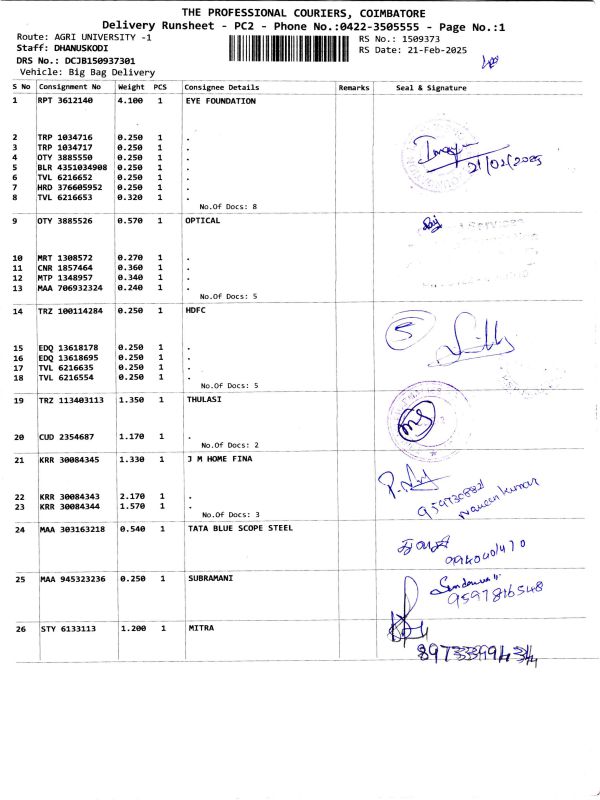 THE PROFESSIONAL COURIERS, COIMBATORE
Delivery Runsheet - PC2 - Phone No.:0422-3505555 - Page No.:1
Route: AGRI UNIVERSITY -1
RS No.: 1509373
Staff: DHANUSKODI
RS Date: 21-Feb-2025
DRS No.: DCJB150937301
Vehicle: Big Bag Delivery
S No Consignment No Weight PCS Consignee Details Remarks Seal & Signature
1 RPT 3612140 4.100 1 EYE FOUNDATION
2 TRP 1034716 0.250 1 .
3 TRP 1034717 0.250 1 .
4 OTY 3885550 0.250 1 .
5 BLR 4351034908 0.250 1 .
6 TVL 6216652 0.250 1 .
7 HRD 376605952 0.250 1 .
8 TVL 6216653 0.320 1 .
21/02/2025
No.Of Docs: 8
9 OTY 3885526 0.570 1 OPTICAL
10 MRT 1308572 0.270 1 .
11 CNR 1857464 0.360 1 .
12 MTP 1348957 0.340 1 .
13 MAA 706932324 0.240 1 .
No.Of Docs: 5
14 TRZ 100114284 0.250 1 HDFC
5
15 EDQ 13618178 0.250 1 .
16 EDQ 13618695 0.250 1 .
17 TVL 6216635 0.250 1 .
18 TVL 6216554 0.250 1 .
No.Of Docs: 5
19 TRZ 113403113 1.350 1 THULASI
20 CUD 2354687 1.170 1 .
No.Of Docs: 2
21 KRR 30084345 1.330 1 J M HOME FINA
22 KRR 30084343 2.170 1 .
23 KRR 30084344 1.570 1 .
No.Of Docs: 3
Praveen kumar
24 MAA 303163218 0.540 1 TATA BLUE SCOPE STEEL
25 MAA 945323236 0.250 1 SUBRAMANI
9597816548
26 STY 6133113 1.200 1 MITRA